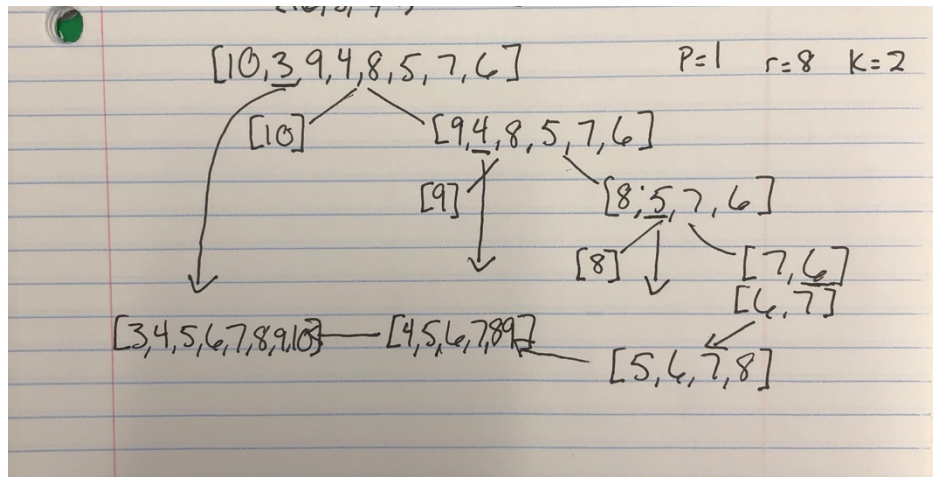 [10,3,9,4,8,5,7,6] P=1 r=8 K=2
[10] [9,4,8,5,7,6]
[9] [8,5,7,6]
[8] [7,6]
[6,7]
[3,4,5,6,7,8,9,10] [4,5,6,7,89]
[5,6,7,8]